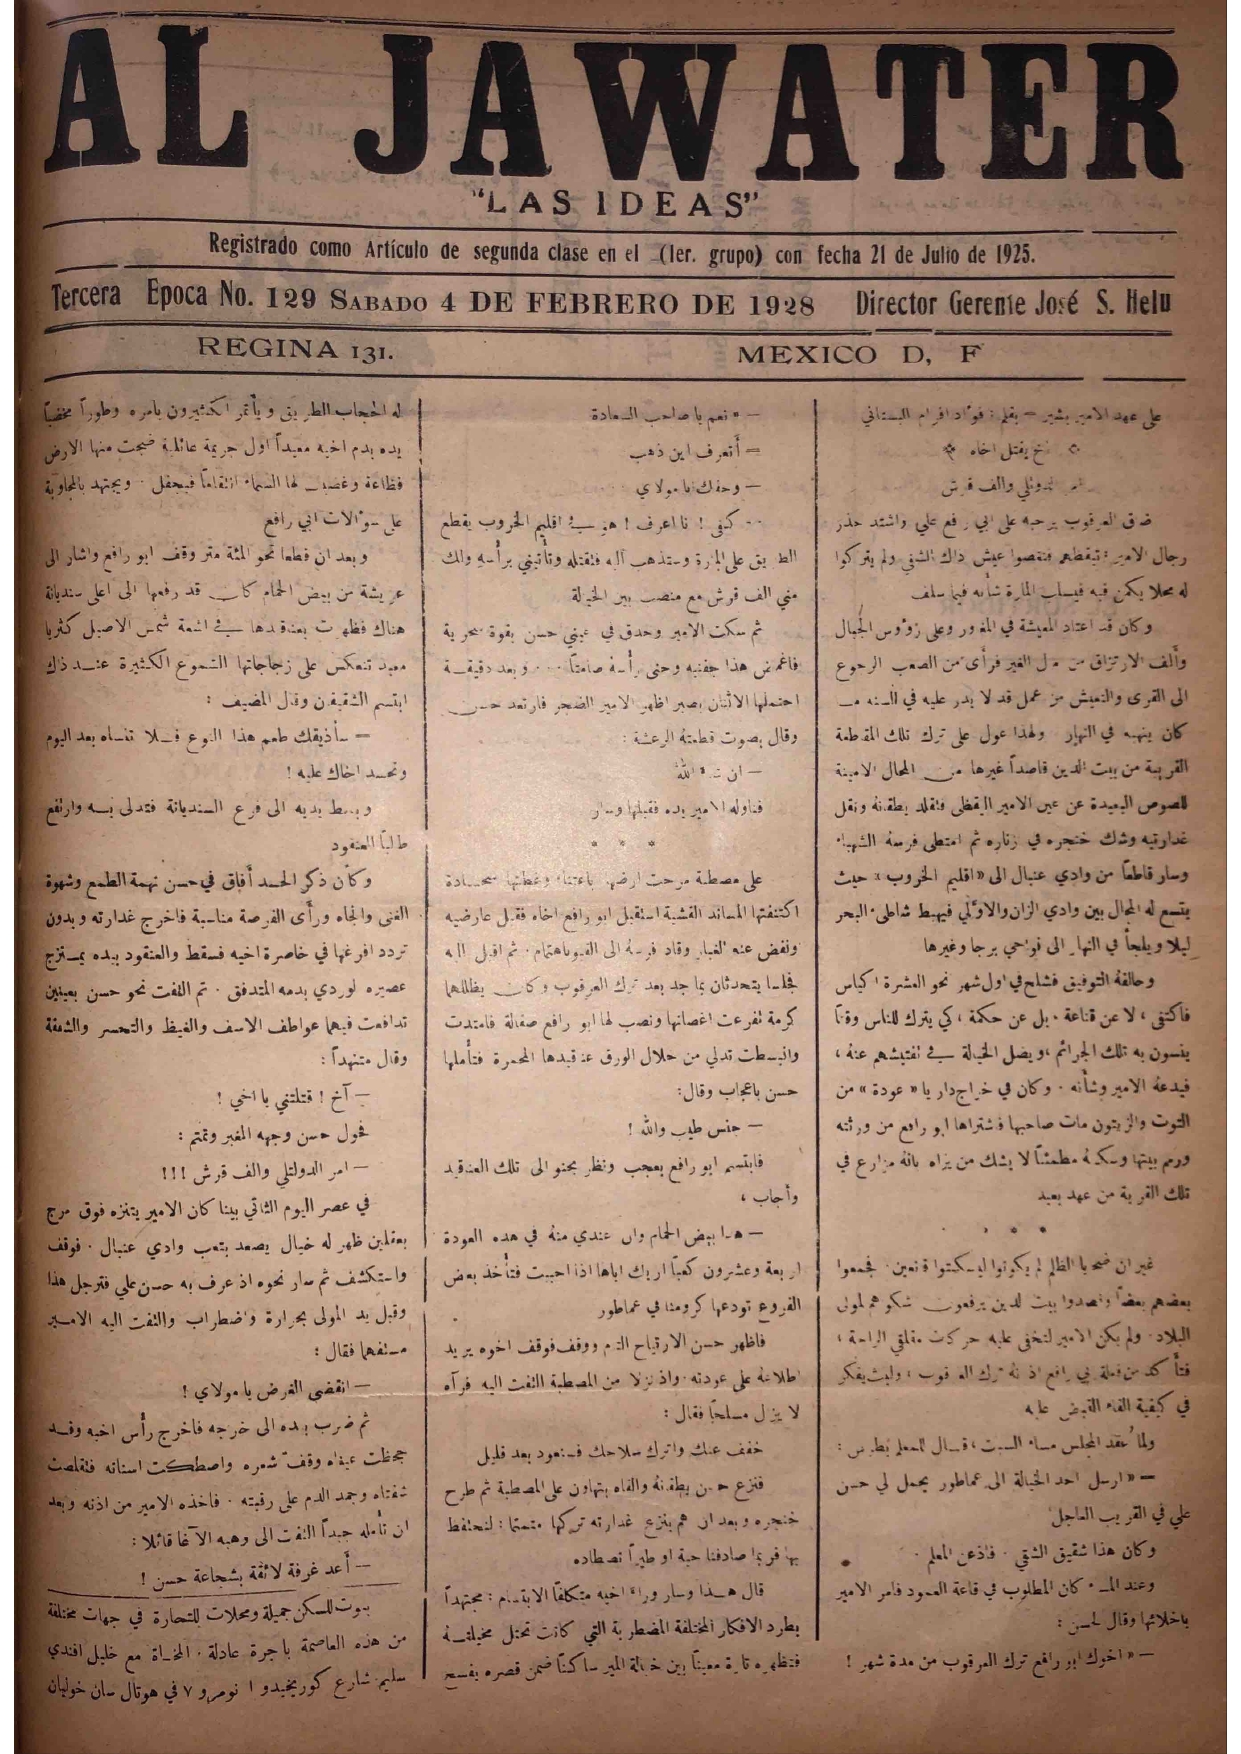 AL JAWATER
"LAS IDEAS"
Registrado como Artículo de segunda clase en el (1er. grupo) con fecha 21 de Julio de 1925.
Tercera Epoca No. 129 SABADO 4 DE FEBRERO DE 1928 Director Gerente José S. Helu
REGINA 131. MEXICO D, F
على عهد الامير بشير — بقلم: فؤاد افرام البستاني
يقتل اخاه
والف قرش
ضاق العرقوب برحبه على ابي رافع علي واشتد حذر
رجال الامير فنغصوا عيش ذاك الشقي ولم يتركوا
له محلا يكمن فيه فيسلب المارة شأنه فيما سلف
وكان قد اعتاد المعيشة في المغاور وعلى رؤوس الجبال
وألف الارتزاق من مال الغير فرأى من الصعب الرجوع
الى القرى والتعيش من عمل قد لا يدر عليه في السنة مـ
كان ينهبه في النهار ولهذا عول على ترك تلك المقطعة
القريبة من بيت الدين قاصداً غيرها من المحال الامينة
للصوص البعيدة عن عين الامير اليقظى فتقلد بطقانه ونقل
غدارتيه وشك خنجره في زناره ثم امتطى فرسه الشهباء
وسار قاطعاً من وادي عنبال الى «اقليم الخروب» حيث
يتسع له المجال بين وادي الزان والاولي فيهبط شاطئ البحر
ليلا ويلجأ في النهار الى نواحي برجا وغيرها
وحالفه التوفيق فشلح في اول شهر نحو العشرة اكياس
فاكتفى، لا عن قناعة، بل عن حكمة، كي يترك للناس وقتاً
ينسون به تلك الجرائم، ويضل الخيالة في تفتيشهم عنه،
فيدعه الامير وشأنه. وكان في خراج داريا «عودة» من
التوت والزيتون مات صاحبها فاشتراها ابو رافع من ورثته
ورمم بيتها وسكنه مطمئناً لا يشك من يراه بانه مزارع في
تلك القرية من عهد بعيد
* * *
غير ان ضحايا الظلم لم يكونوا ليسكتوا قانعين. فجمعوا
بعضهم بعضاً وقصدوا بيت الدين يرفعون شكواهم لمولى
البلاد. ولم يكن الامير لتخفى عليه حركات مقلقي الراحة،
فتأكد من فعلة ابي رافع اذ انه ترك العرقوب، ولبث يفكر
في كيفية القاء القبض عليه
ولما عقد المجلس مساء السبت، قال للمعلم بطرس:
— «ارسل احد الخيالة الى عماطور يحمل لي حسن
علي في القريب العاجل
وكان هذا شقيق الشقي. فاذعن المعلم.
وعند المساء كان المطلوب في قاعة العمود فامر الامير
باخلائها وقال لحسن:
— «اخوك ابو رافع ترك العرقوب من مدة شهر!
— «نعم يا صاحب السعادة
— أتعرف اين ذهب
— وحقك يا مولاي
— كفى! انا اعرف! هو في اقليم الخروب يقطع
الطريق على المارة وستذهب اليه فتقتله وتأتيني برأسه ولك
مني الف قرش مع منصب بين الخيالة
ثم سكت الامير وحدق في عيني حسن بقوة سحرية
فاغمض هذا جفنيه وحنى رأسه صامتاً.... وبعد دقيقـة
احتملها الاثنان بصبر اظهر الامير الضجر فارتعد حسن
وقال بصوت قطعته الرعشة:
— ان شاء الله
فناوله الامير يده فقبلها وسار
* * *
على مصطبة مرحت ارضها باعتناء وغطتها سجـادة
اكتنفتها المساند القشية استقبل ابو رافع اخاه فقبل عارضيه
ونفض عنه الغبار وقاد فرسه الى القبو باهتمام. ثم اقبل اليه
فجلسا يتحدثان بما جد بعد ترك العرقوب وكان يظللهما
كرمة تفرعت اغصانها ونصب لها ابو رافع صقالة فامتدت
وانبسطت تدلي من خلال الورق عناقيدها المحمرة فتأملها
حسن باعجاب وقال:
— جنس طيب والله!
فابتسم ابو رافع بعجب ونظر بحنو الى تلك العناقيد
وأجاب،
— هذا بيض الحمام وان عندي منه في هذه العودة
اربعة وعشرون كعباً اريك اياها اذا احببت فتأخذ بعض
الفروع تودعها كرومنا في عماطور
فاظهر حسن الارتياح التام ووقف فوقف اخوه يريد
اطلاعه على عودته. واذ نزلا من المصطبة التفت اليه فرآه
لا يزال مسلحاً فقال:
خفف عنك واترك سلاحك فسنعود بعد قليل
فنزع حسن بطقانه والقاه بتهاون على المصطبة ثم طرح
خنجره وبعد ان هم بنزع غدارته تركها متمتما: لنحتفظ
بها فربما صادفنا حية او طيراً نصطاده
قال هـذا وسار وراء اخيه متكلفاً الابتسام: مجتهداً
بطرد الافكار المختلفة المضطربة التي كانت تحتل مخيلتـه
فتظهره تارة معيناً بين خيالة المير ساكناً ضمن قصره يفسح
له الحجاب الطريق ويأتمر الكثيرون بامره وطوراً مخضباً
يده بدم اخيه معيداً اول جريمة عائلية ضجت منها الارض
فظاعة وغضبت لها السماء انتقاماً فيجفل. ويجتهد بالمجاوبة
على سؤالات ابي رافع
وبعد ان قطعا نحو المئة متر وقف ابو رافع واشار الى
عريشة من بيض الحمام كان قد رفعها الى اعلى سنديانة
هناك فظهرت بعناقيدها في اشعة شمس الاصيل كثريا
معبد تنعكس على زجاجاتها الشموع الكثيرة عنـد ذاك
ابتسم الشقيقان وقال المضيف:
— سأذيقك طعم هذا النوع فـلا تنساه بعد اليوم
وتحسد اخاك عليه!
وبسط يديه الى فرع السنديانة فتدلى بـه وارتفع
طالباً العنقود
وكأن ذكر الحسد أفاق في حسن نهمة الطمع وشهوة
الغنى والجاه ورأى الفرصة مناسبة فاخرج غدارته وبدون
تردد افرغها في خاصرة اخيه فسقط والعنقود بيده يمتزج
عصيره الوردي بدمه المتدفق. ثم التفت نحو حسن بعينين
تدافعت فيهما عواطف الاسف والغيظ والتحسر والشفقة
وقال متنهداً:
— آخ! قتلتني يا اخي!
فحول حسن وجهه المغبر وتمتم:
— امر الدولتلي والف قرش!!!
في عصر اليوم الثاني بينا كان الامير يتنزه فوق مرج
بعقلين ظهر له خيال يصعد بتعب وادي عنبال. فوقف
واستكشف ثم سار نحوه اذ عرف به حسن علي فترجل هذا
وقبل يد المولى بحرارة واضطراب والتفت اليه الامـير
مستفهما فقال:
— انقضى الغرض يا مولاي!
ثم ضرب بيده الى خرجه فاخرج رأس اخيه وقـد
جحظت عيناه وقفّ شعره واصطكت اسنانه فتقلصت
شفتاه وجمد الدم على رقبته. فاخذه الامير من اذنه وبعد
ان تأمله جيداً التفت الى وهبه الآغا قائلا:
— أعد غرفة لائقة بشجاعة حسن!
بيوت للسكن جميلة ومحلات للتجارة في جهات مختلفة
من هذه العاصمة باجرة عادلة. المخابرة مع خليل افندي
سليم. شارع كوريخيدورا نومرو ٧ في هوتال سان خوليان